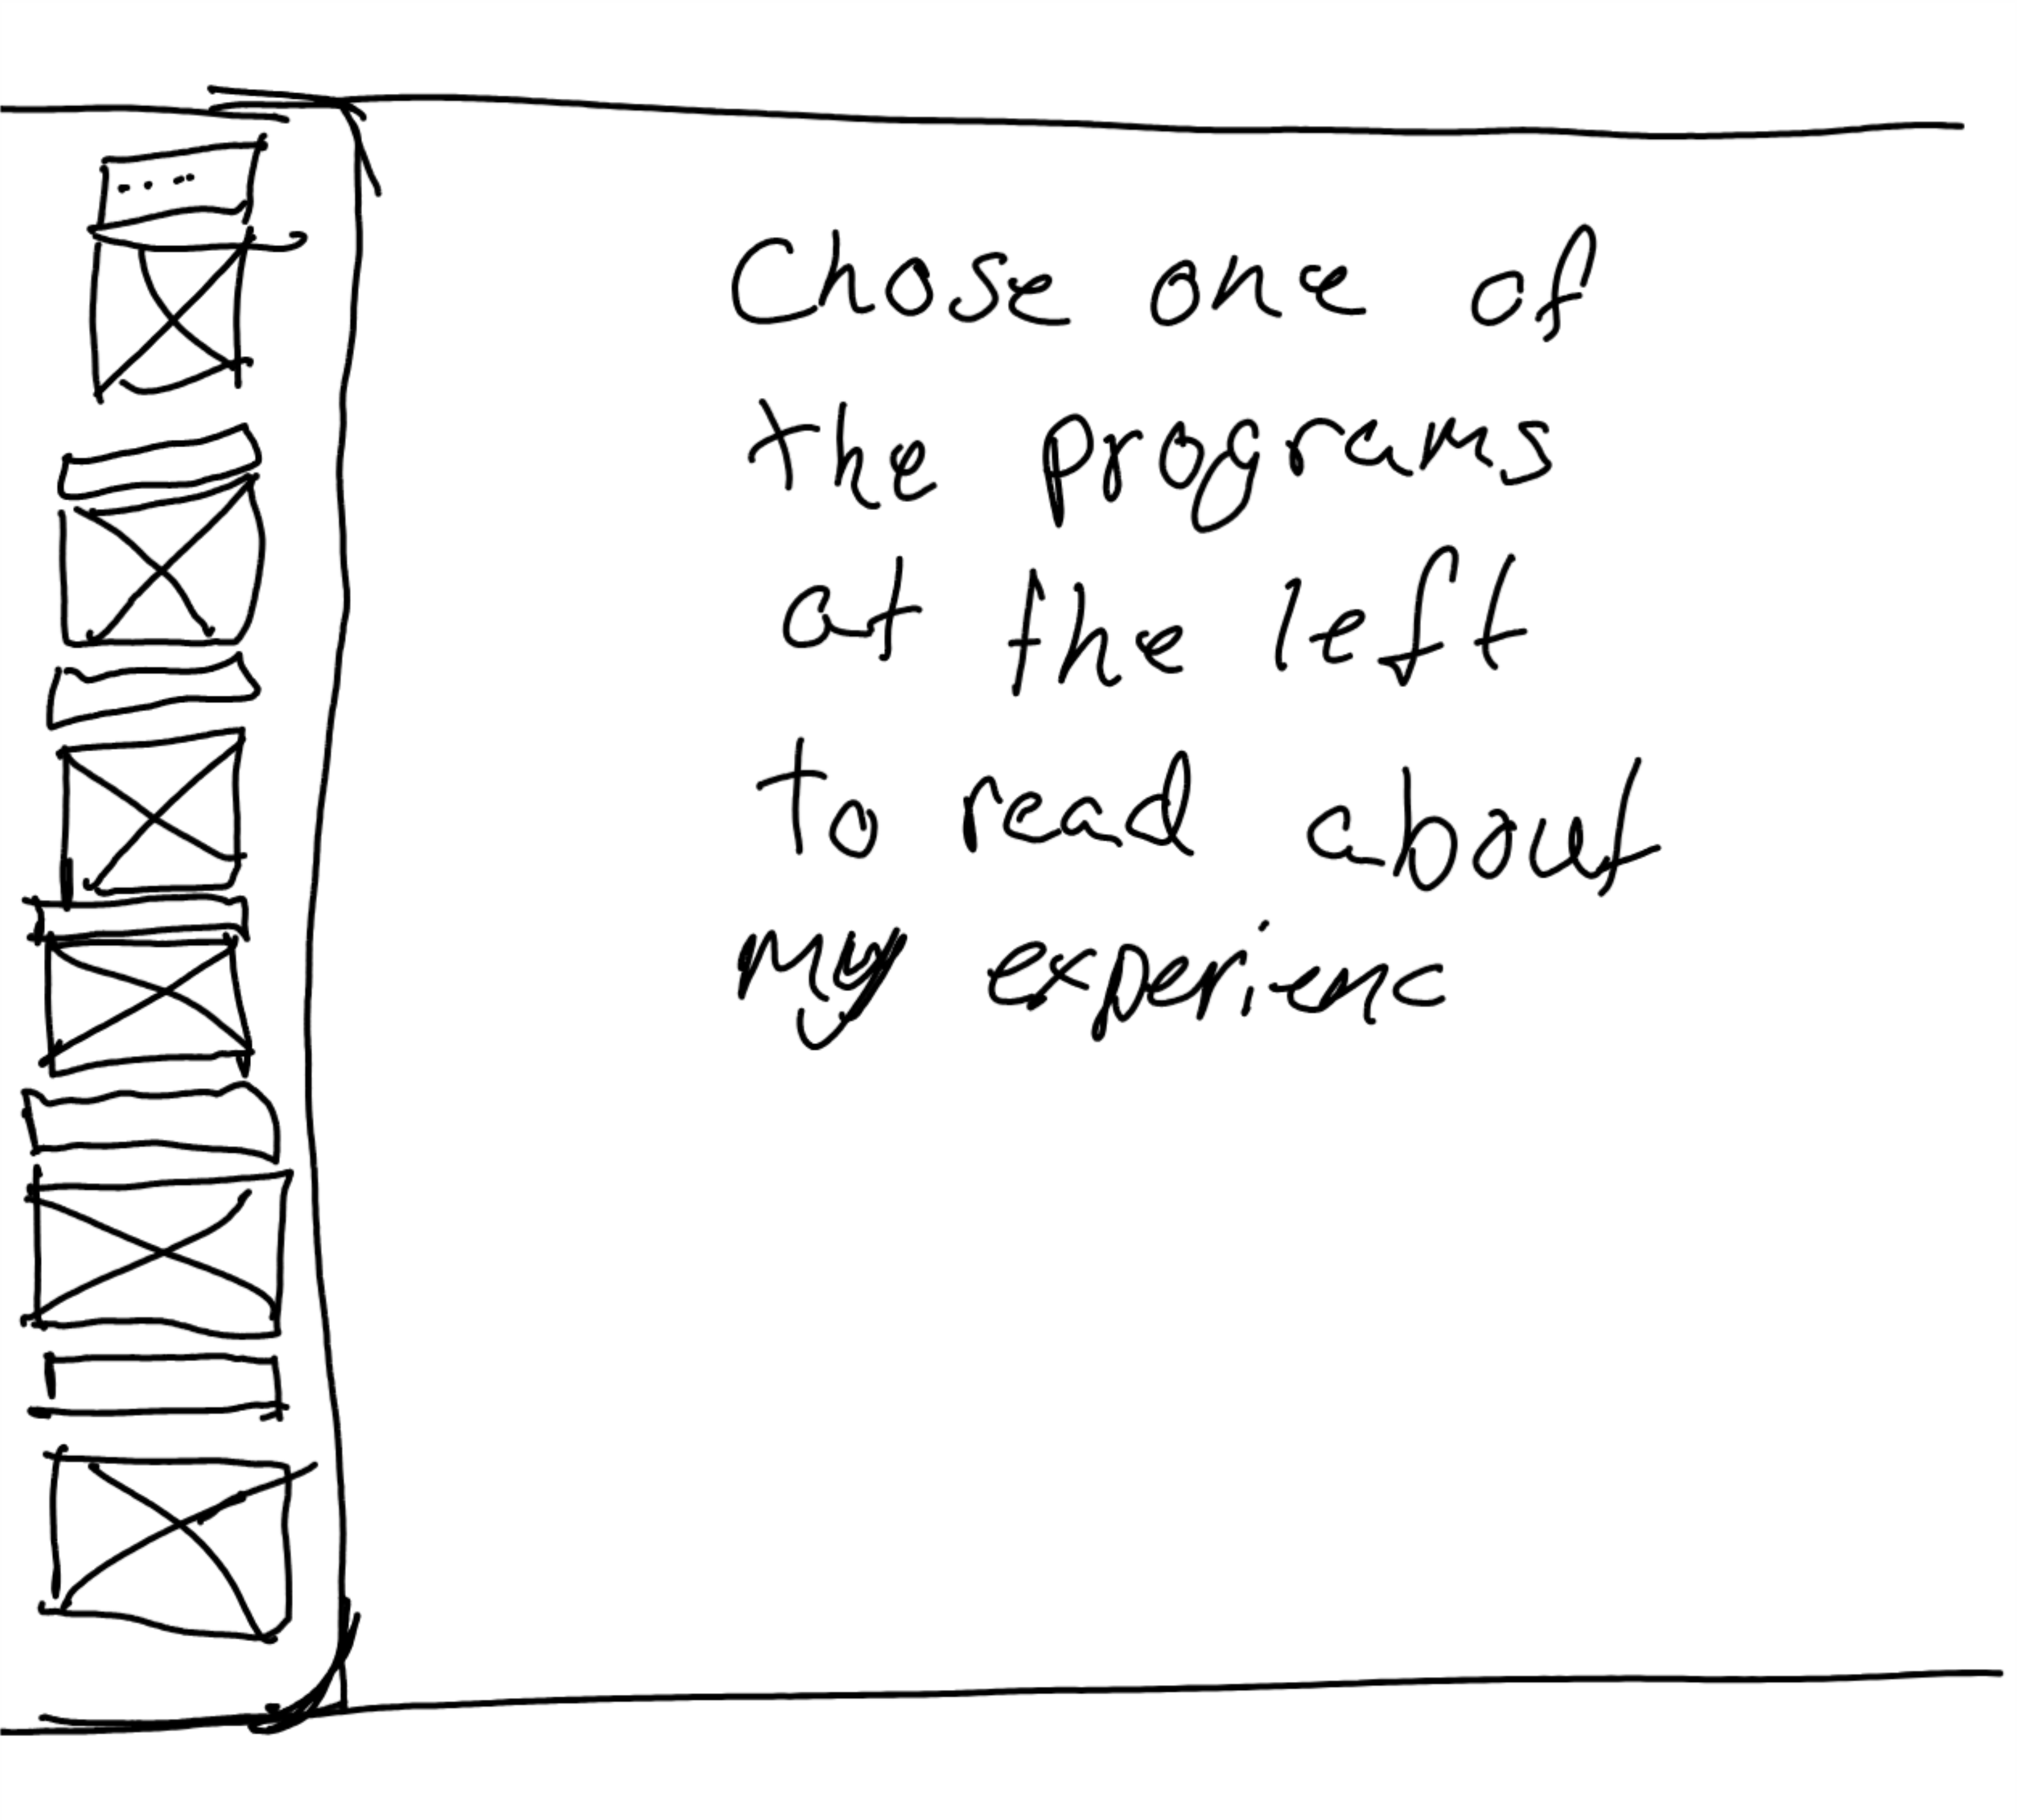 Chose one of
the programs
at the left
to read about
my experienc